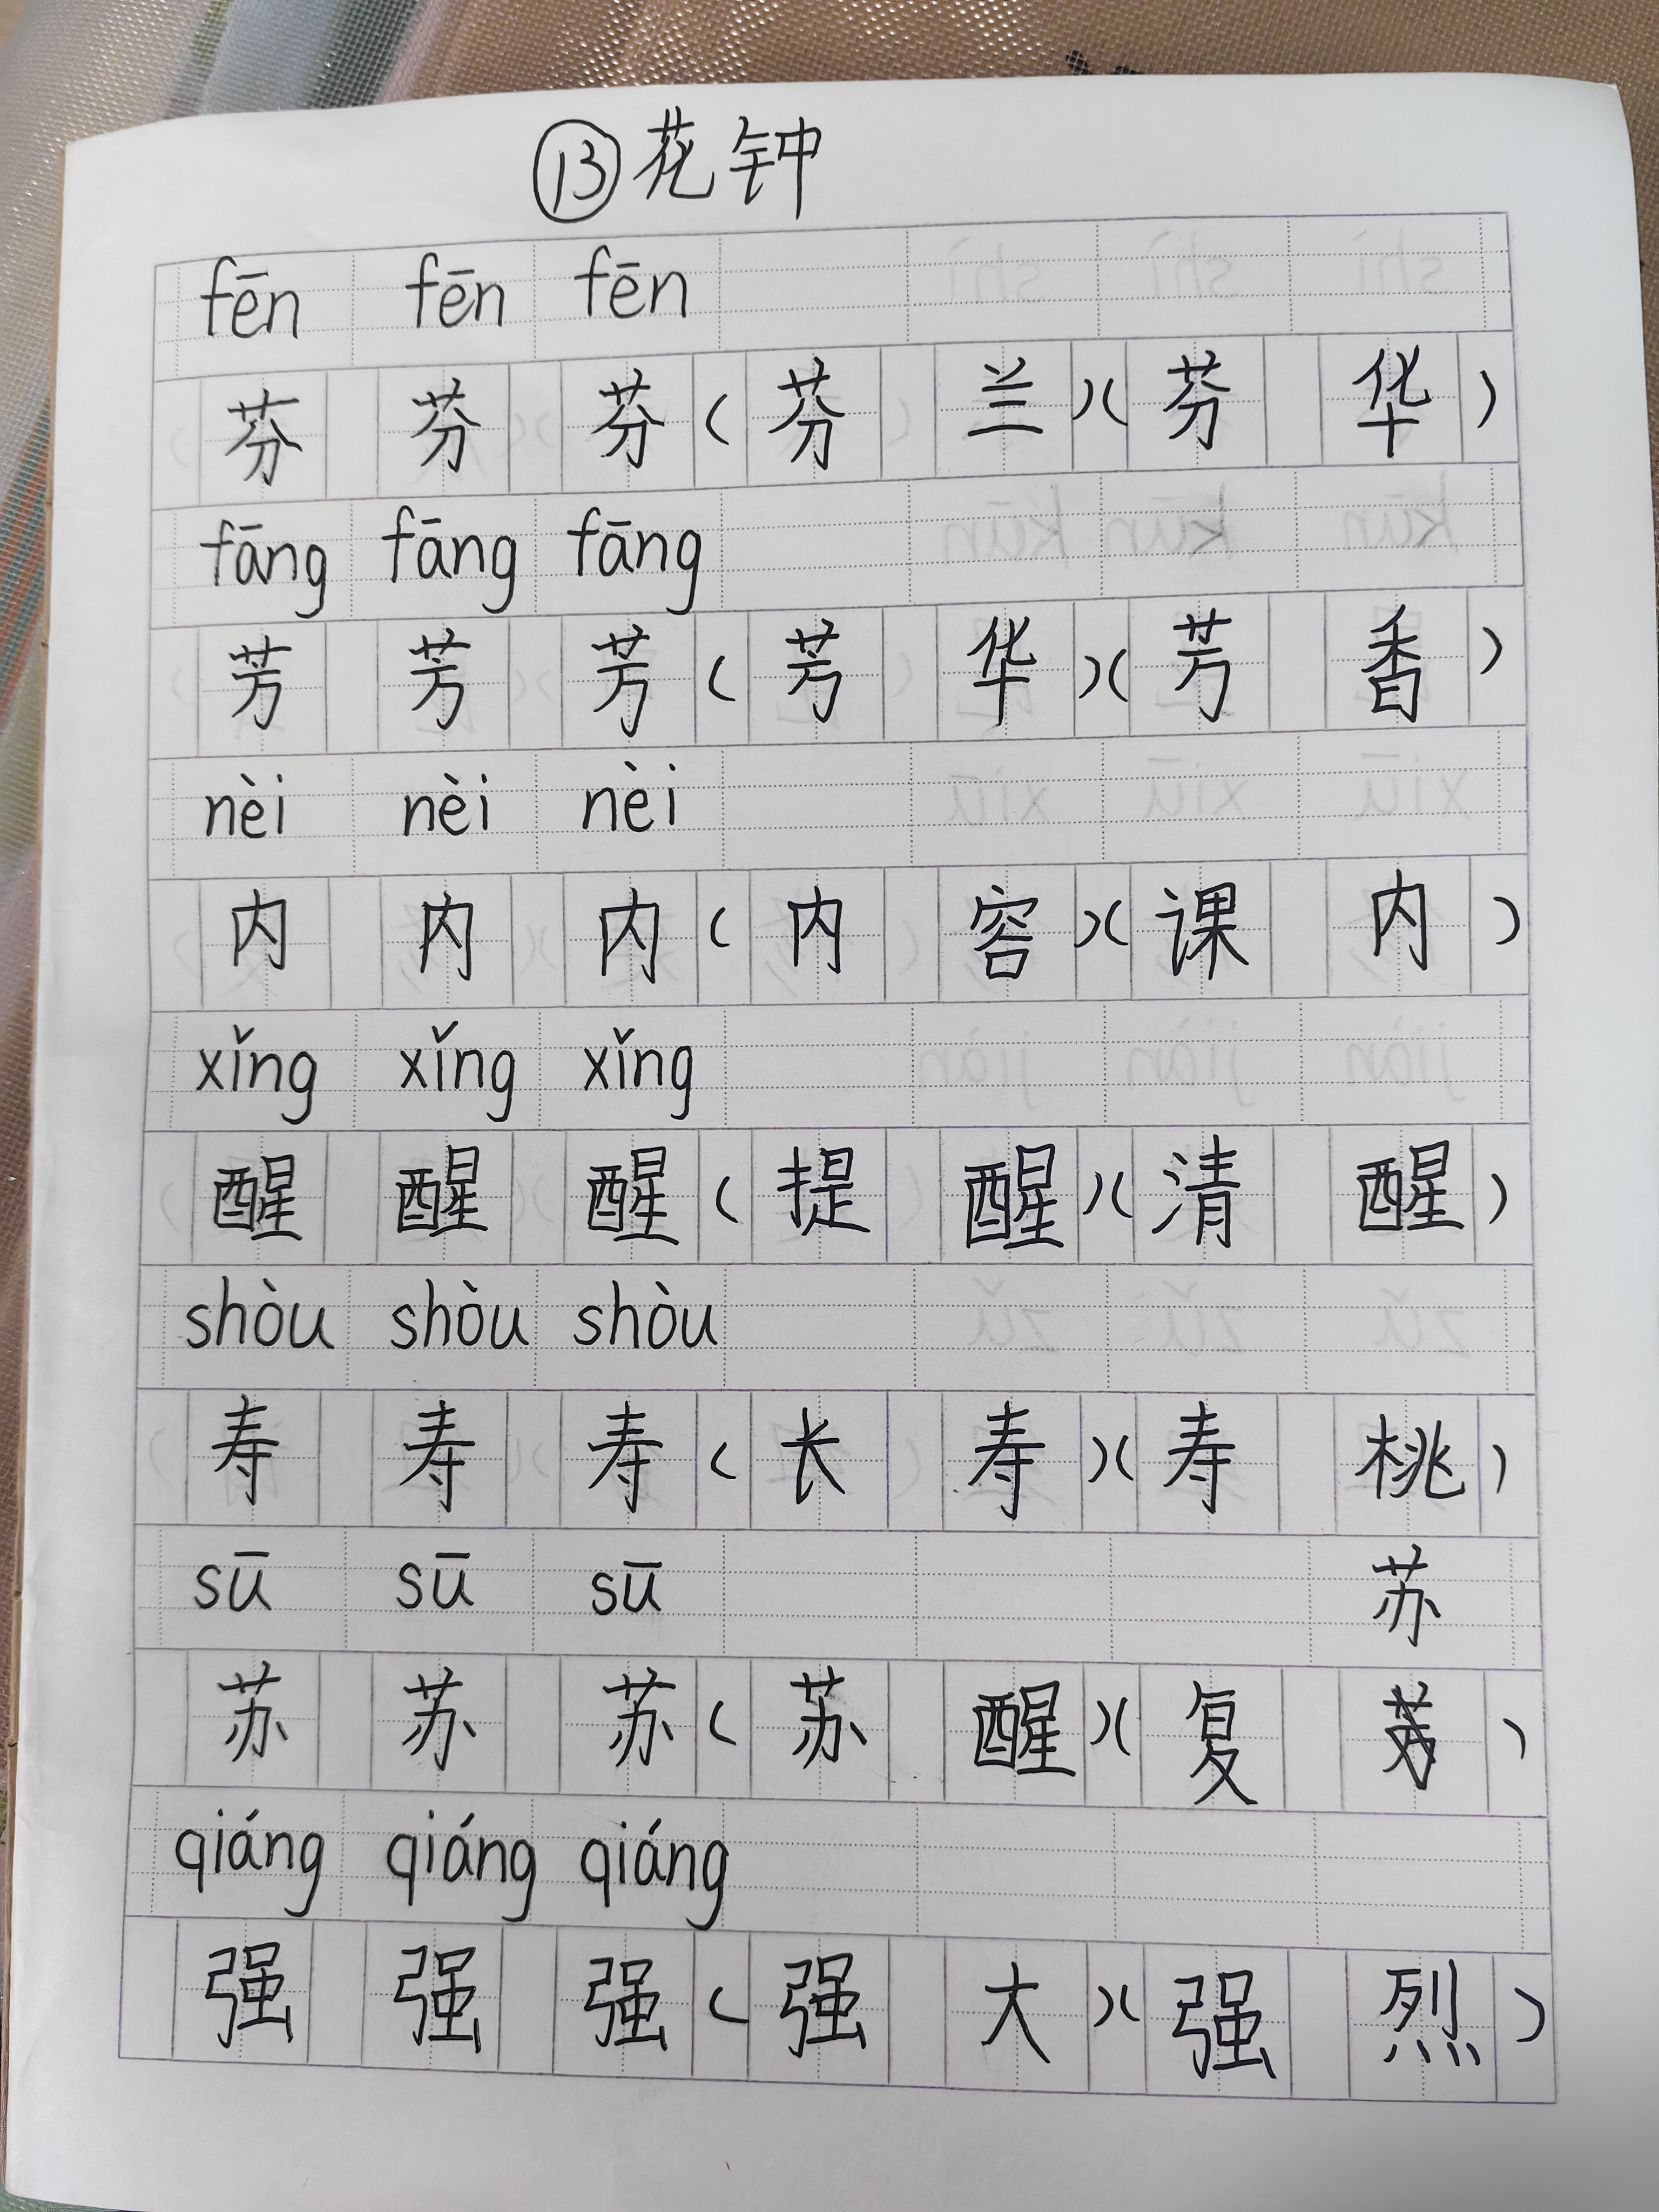 ⑬花钟
fēn fēn fēn
芬 芬 芬(芬 兰)(芬 华)
fāng fāng fāng
芳 芳 芳(芳 华)(芳 香)
nèi nèi nèi
内 内 内(内 容)(课 内)
xǐng xǐng xǐng
醒 醒 醒(提 醒)(清 醒)
shòu shòu shòu
寿 寿 寿(长 寿)(寿 桃)
sū sū sū 苏
苏 苏 苏(苏 醒)(复 )
qiáng qiáng qiáng
强 强 强(强 大)(强 烈)